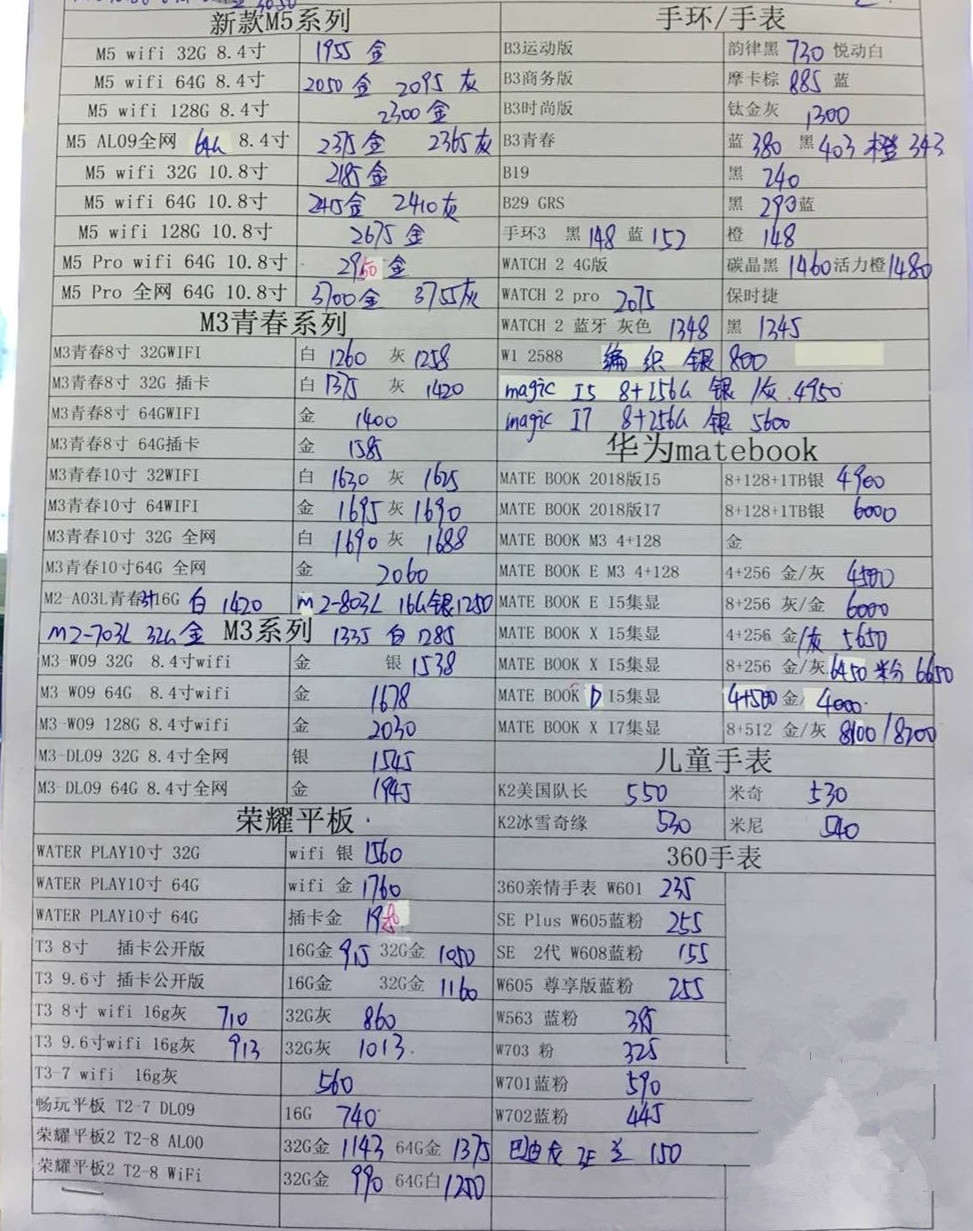 新款M5系列
M5 wifi 32G 8.4寸 1955 金
M5 wifi 64G 8.4寸 2050 金 2095 灰
M5 wifi 128G 8.4寸 2300 金
M5 AL09全网 64G 8.4寸 2375 金 2365 灰
M5 wifi 32G 10.8寸 2185 金
M5 wifi 64G 10.8寸 2415 金 2410 灰
M5 wifi 128G 10.8寸 2675 金
M5 Pro wifi 64G 10.8寸 2950 金
M5 Pro 全网 64G 10.8寸 3700 金 3755 灰
M3青春系列
M3青春8寸 32GWIFI 白 1260 灰 1258
M3青春8寸 32G 插卡 白 1375 灰 1420
M3青春8寸 64GWIFI 金 1400
M3青春8寸 64G插卡 金 1585
M3青春10寸 32WIFI 白 1630 灰 1625
M3青春10寸 64WIFI 金 1695 灰 1690
M3青春10寸 32G 全网 白 1690 灰 1688
M3青春10寸64G 全网 金 2060
M2-A03L青春 16G 白 1420 M2-803L 16G银1250
M2-703L 32G 金 M3系列 1335 白 1285
M3-W09 32G 8.4寸wifi 金 银 1538
M3-W09 64G 8.4寸wifi 金 1678
M3-W09 128G 8.4寸wifi 金 2030
M3-DL09 32G 8.4寸全网 银 1545
M3-DL09 64G 8.4寸全网 金 1945
荣耀平板
WATER PLAY10寸 32G wifi 银 1560
WATER PLAY10寸 64G wifi 金 1760
WATER PLAY10寸 64G 插卡金
T3 8寸 插卡公开版 16G金 915 32G金 1050
T3 9.6寸 插卡公开版 16G金 32G金 1160
T3 8寸 wifi 16g灰 710 32G灰 860
T3 9.6寸wifi 16g灰 913 32G灰 1013
T3-7 wifi 16g灰 560
畅玩平板 T2-7 DL09 16G 740
荣耀平板2 T2-8 AL00 32G金 1143 64G金 1375
荣耀平板2 T2-8 WiFi 32G金 990 64G白 1250
手环/手表
B3运动版 韵律黑 730 悦动白
B3商务版 摩卡棕 885 蓝
B3时尚版 钛金灰 1300
B3青春 蓝 380 黑 403 橙 343
B19 黑 240
B29 GRS 黑 290 蓝
手环3 黑 148 蓝 152 橙 148
WATCH 2 4G版 碳晶黑 1460 活力橙 1480
WATCH 2 pro 2075 保时捷
WATCH 2 蓝牙 灰色 1348 黑 1345
W1 2588 编织银 800
magic I5 8+256G 银/灰 4950
magic I7 8+256G 银 5600
华为matebook
MATE BOOK 2018版I5 8+128+1TB银 4900
MATE BOOK 2018版I7 8+128+1TB银 6000
MATE BOOK M3 4+128 金
MATE BOOK E M3 4+128 4+256 金/灰 4500
MATE BOOK E I5集显 8+256 灰/金 6000
MATE BOOK X I5集显 4+256 金/灰 5650
MATE BOOK X I5集显 8+256 金/灰 6450 粉 6650
MATE BOOK D I5集显 4+500 金/ 4000
MATE BOOK X I7集显 8+512 金/灰 8100/8200
儿童手表
K2美国队长 550 米奇 530
K2冰雪奇缘 530 米尼 540
360手表
360亲情手表 W601 235
SE Plus W605蓝粉 255
SE 2代 W608蓝粉 155
W605 尊享版蓝粉 255
W563 蓝粉 385
W703 粉 325
W701蓝粉 590
W702蓝粉 445
巴迪龙 150